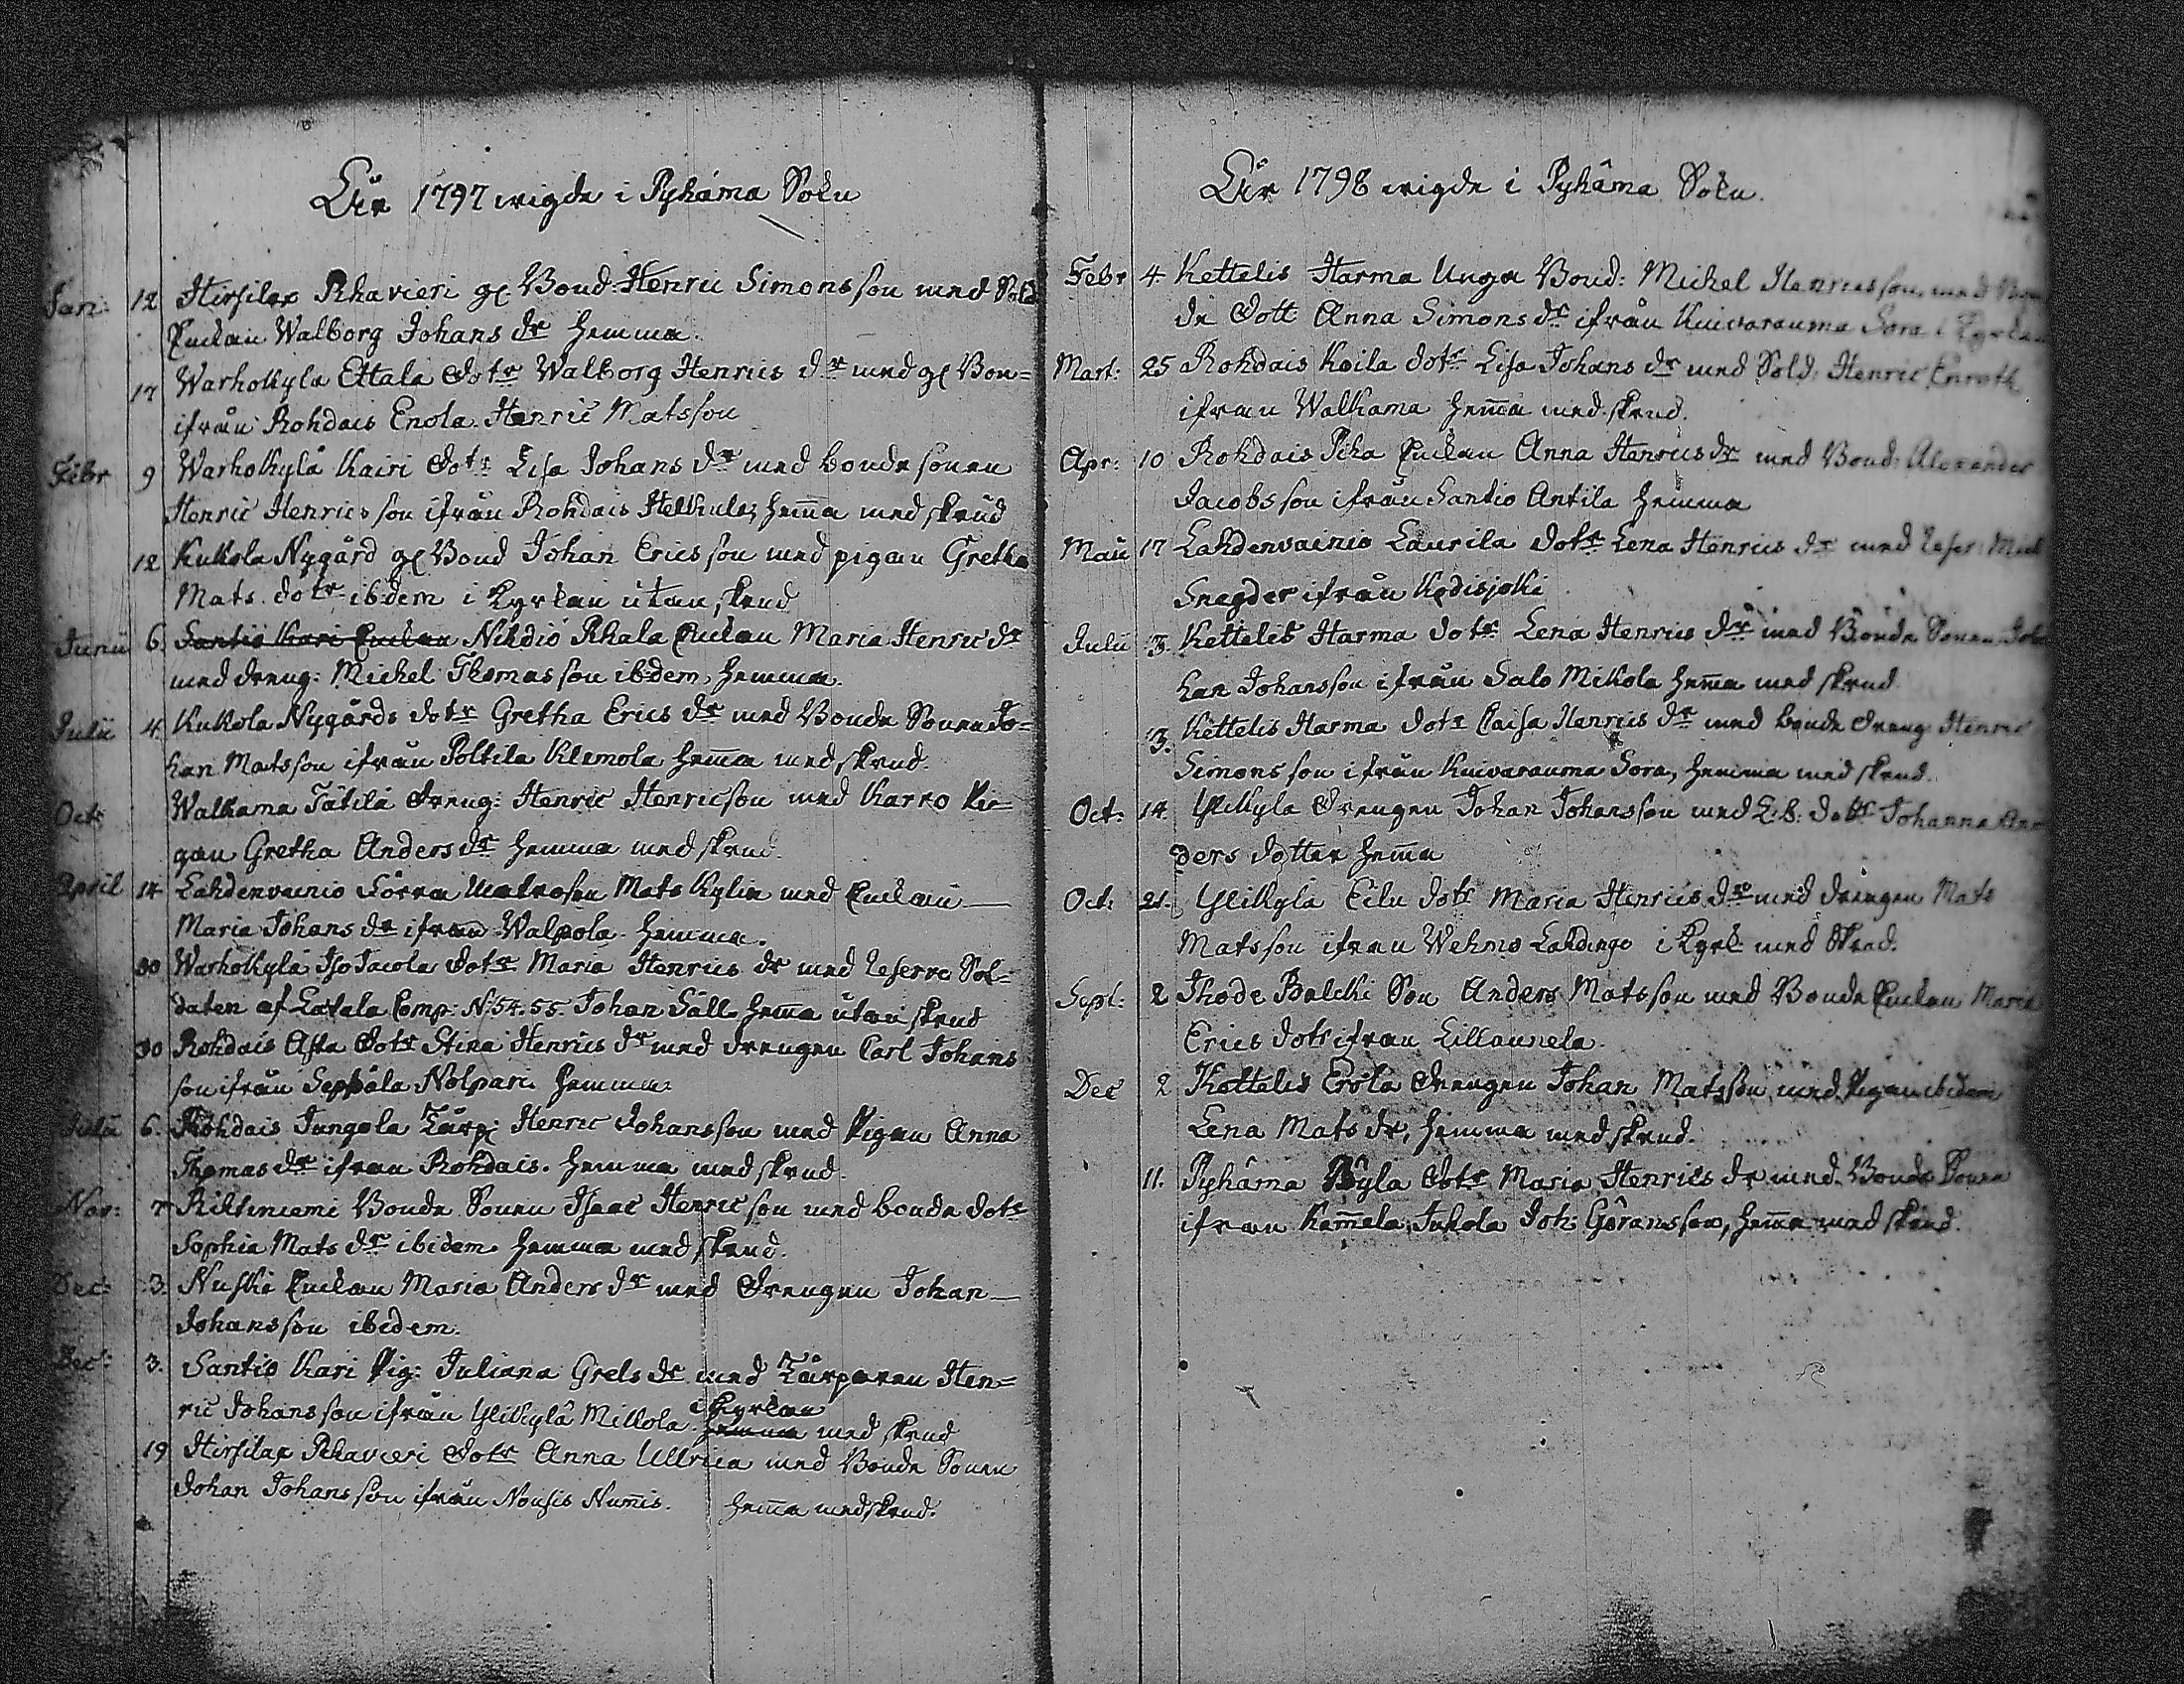 Åhr 1797 wigde i Pyhäma Sokn
Jan: 12 Hirsilax Rhavieri gl Bond: Henric Simonsson med Sold
Enckan Walborg Johans dr hemma.
17 Warhokylä Ettala dotr Walborg Henrics dr med gl Bon=
ifrån Rohdais Enola Henric Matsson
Febr 9 Warhokylä Kairi Dotr Lisa Johans dr med bonde sonen
Henric Henricsson ifrån Rohdais hem̄a med skrud
12 Kukola Nygård gl Bond Johan Ericsson med pigan Gretha
Mats dotr ibdem i Kyrkan utan skrud
Junii 6. Santio Kari Enckan Nihdiö Rhala Enckan Maria Henric dr
med dreng: Michel Thomasson ibdem, hemma.
Julii 4. Kukola Nygårds dotr Gretha Erics dr med Bonde Sonen Jo=
han Matsson ifrån Poltila Klemola hem̄a med skrud.
Oct: Walkama Tätilä dreng: Henric Henricson med Karro Pi=
gan Gretha Anders dr hemma med skrud.
April 14 Lahdenvainio Sörra Matrosen Mats Kylin med Enckan
Maria Johans dr ifrån Walpola hemma.
30 Warhokylä Iso Jacola dotr Maria Henrics dr med Reserve Sol=
daten af Letala Comp: N:54.55. Johan Säll hem̄a utan skrud
30 Rohdais Asta Dotr Stina Henrics dr med drengen Carl Johans
son ifrån Seppälä Nolpari hemma
Julii 6. Rohdais Jungola Torp: Henric Johansson med Pigan Anna
Thomas dr ifrån Rohdais. hemma med skrud.
Nov: 7 Riktiniemi Bonde Sonen Isaac Henricson med bonde dotr
Sophia Mats dr ibidem hemma med skrud.
Dec: 3. Nuski Enckan Maria Anders dr med Drengen Johan
Johansson ibidem.
Dec: 3. Santio Kari Pig: Juliana Grels dr med Torparen Hen=
i Kyrkan
ric Johansson ifrån Ylikylä Mikkola. hemma med skrud
19 Hirsilax Rhavieri Dotr Anna Ullrica med Bonde Sonen
Johan Johansson ifrån Nousis Num̄is. hem̄a med skrud.
Åhr 1798 wigde i Pyhäma Sokn.
Febr 4. Kettelis Harma Unga Bond: Michel Henricsson, med Bon
de Dott Anna Simons dr ifrån Kuivarauma Sora i Kyrkan
Mart: 25 Rohdais Koila dotr Lisa Johans dr med Sold: Henric Enroth
ifrån Walkama hem̄a med skrud.
Apr: 10 Rohdais Piha Enckan Anna Henrics dr med Bond: Alexander
Jacobsson ifrån Santio Antila hemma
Maii 17 Lahdenvainio Laurila dotr Lena Henrics dr med Reser:
Snegder ifrån Kodisjoki
Julii 3. Kettelis Harma dotr Lena Henrics dr med Bonde Sonen Jo
han Johansson ifrån Salo Mikola hem̄a med skrud.
3. Kettelis Harma dotr Caisa Henrics dr med bonde dreng Henric
Simonsson ifrån Kuivarauma Sora, hemma med skrud.
Oct: 14. Ylikylä Drengen Johan Johansson med dotr Johanna An
ders dotter hem̄a
Oct: 21. Ylikylä Eilu dotr Maria Henrics dr med drengen Mats
Matsson ifrån Wehmo Lahdingo i Kyrk: med Skrud.
Sept: 2 Ihode Palcki Son Anders Matsson med Bonde Enckan Maria
Erics dotr ifrån Lillaunela.
Dec 2 Kettelis Erola drengen Johan Matsson med Pigan ibidem
Lena Mats dr, hemma med skrud.
11. Pyhäma Byla dotr Maria Henrics dr med Bonde Sonen
ifrån Kam̄ela Jukola Joh: Göransson, hem̄a med skrud.